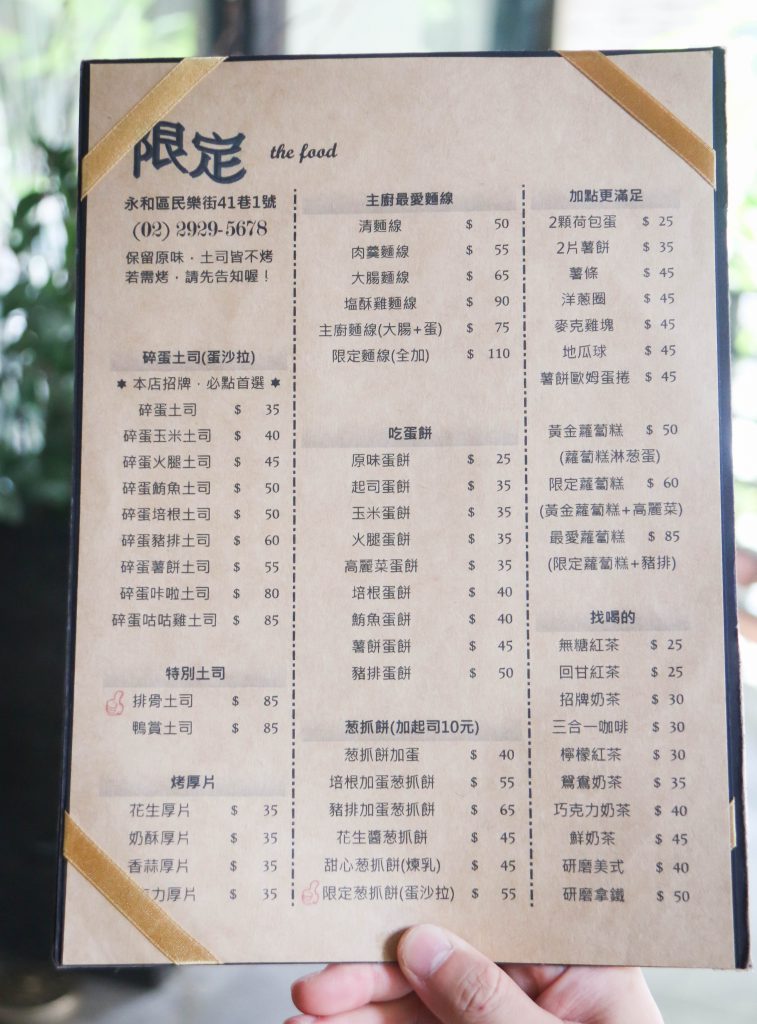 限定 the food
永和區民樂街41巷1號
(02) 2929-5678
保留原味，土司皆不烤
若需烤，請先告知喔！
碎蛋土司(蛋沙拉)
✱ 本店招牌，必點首選 ✱
碎蛋土司 $ 35
碎蛋玉米土司 $ 40
碎蛋火腿土司 $ 45
碎蛋鮪魚土司 $ 50
碎蛋培根土司 $ 50
碎蛋豬排土司 $ 60
碎蛋薯餅土司 $ 55
碎蛋咔啦土司 $ 80
碎蛋咕咕雞土司 $ 85
特別土司
排骨土司 $ 85
鴨賞土司 $ 85
烤厚片
花生厚片 $ 35
奶酥厚片 $ 35
香蒜厚片 $ 35
力厚片 $ 35
主廚最愛麵線
清麵線 $ 50
肉羹麵線 $ 55
大腸麵線 $ 65
塩酥雞麵線 $ 90
主廚麵線(大腸+蛋) $ 75
限定麵線(全加) $ 110
吃蛋餅
原味蛋餅 $ 25
起司蛋餅 $ 35
玉米蛋餅 $ 35
火腿蛋餅 $ 35
高麗菜蛋餅 $ 35
培根蛋餅 $ 40
鮪魚蛋餅 $ 40
薯餅蛋餅 $ 45
豬排蛋餅 $ 50
葱抓餅(加起司10元)
葱抓餅加蛋 $ 40
培根加蛋葱抓餅 $ 55
豬排加蛋葱抓餅 $ 65
花生醬葱抓餅 $ 45
甜心葱抓餅(煉乳) $ 45
限定葱抓餅(蛋沙拉) $ 55
加點更滿足
2顆荷包蛋 $ 25
2片薯餅 $ 35
薯條 $ 45
洋蔥圈 $ 45
麥克雞塊 $ 45
地瓜球 $ 45
薯餅歐姆蛋捲 $ 45
黃金蘿蔔糕 $ 50
(蘿蔔糕淋葱蛋)
限定蘿蔔糕 $ 60
(黃金蘿蔔糕+高麗菜)
最愛蘿蔔糕 $ 85
(限定蘿蔔糕+豬排)
找喝的
無糖紅茶 $ 25
回甘紅茶 $ 25
招牌奶茶 $ 30
三合一咖啡 $ 30
檸檬紅茶 $ 30
鴛鴦奶茶 $ 35
巧克力奶茶 $ 40
鮮奶茶 $ 45
研磨美式 $ 40
研磨拿鐵 $ 50